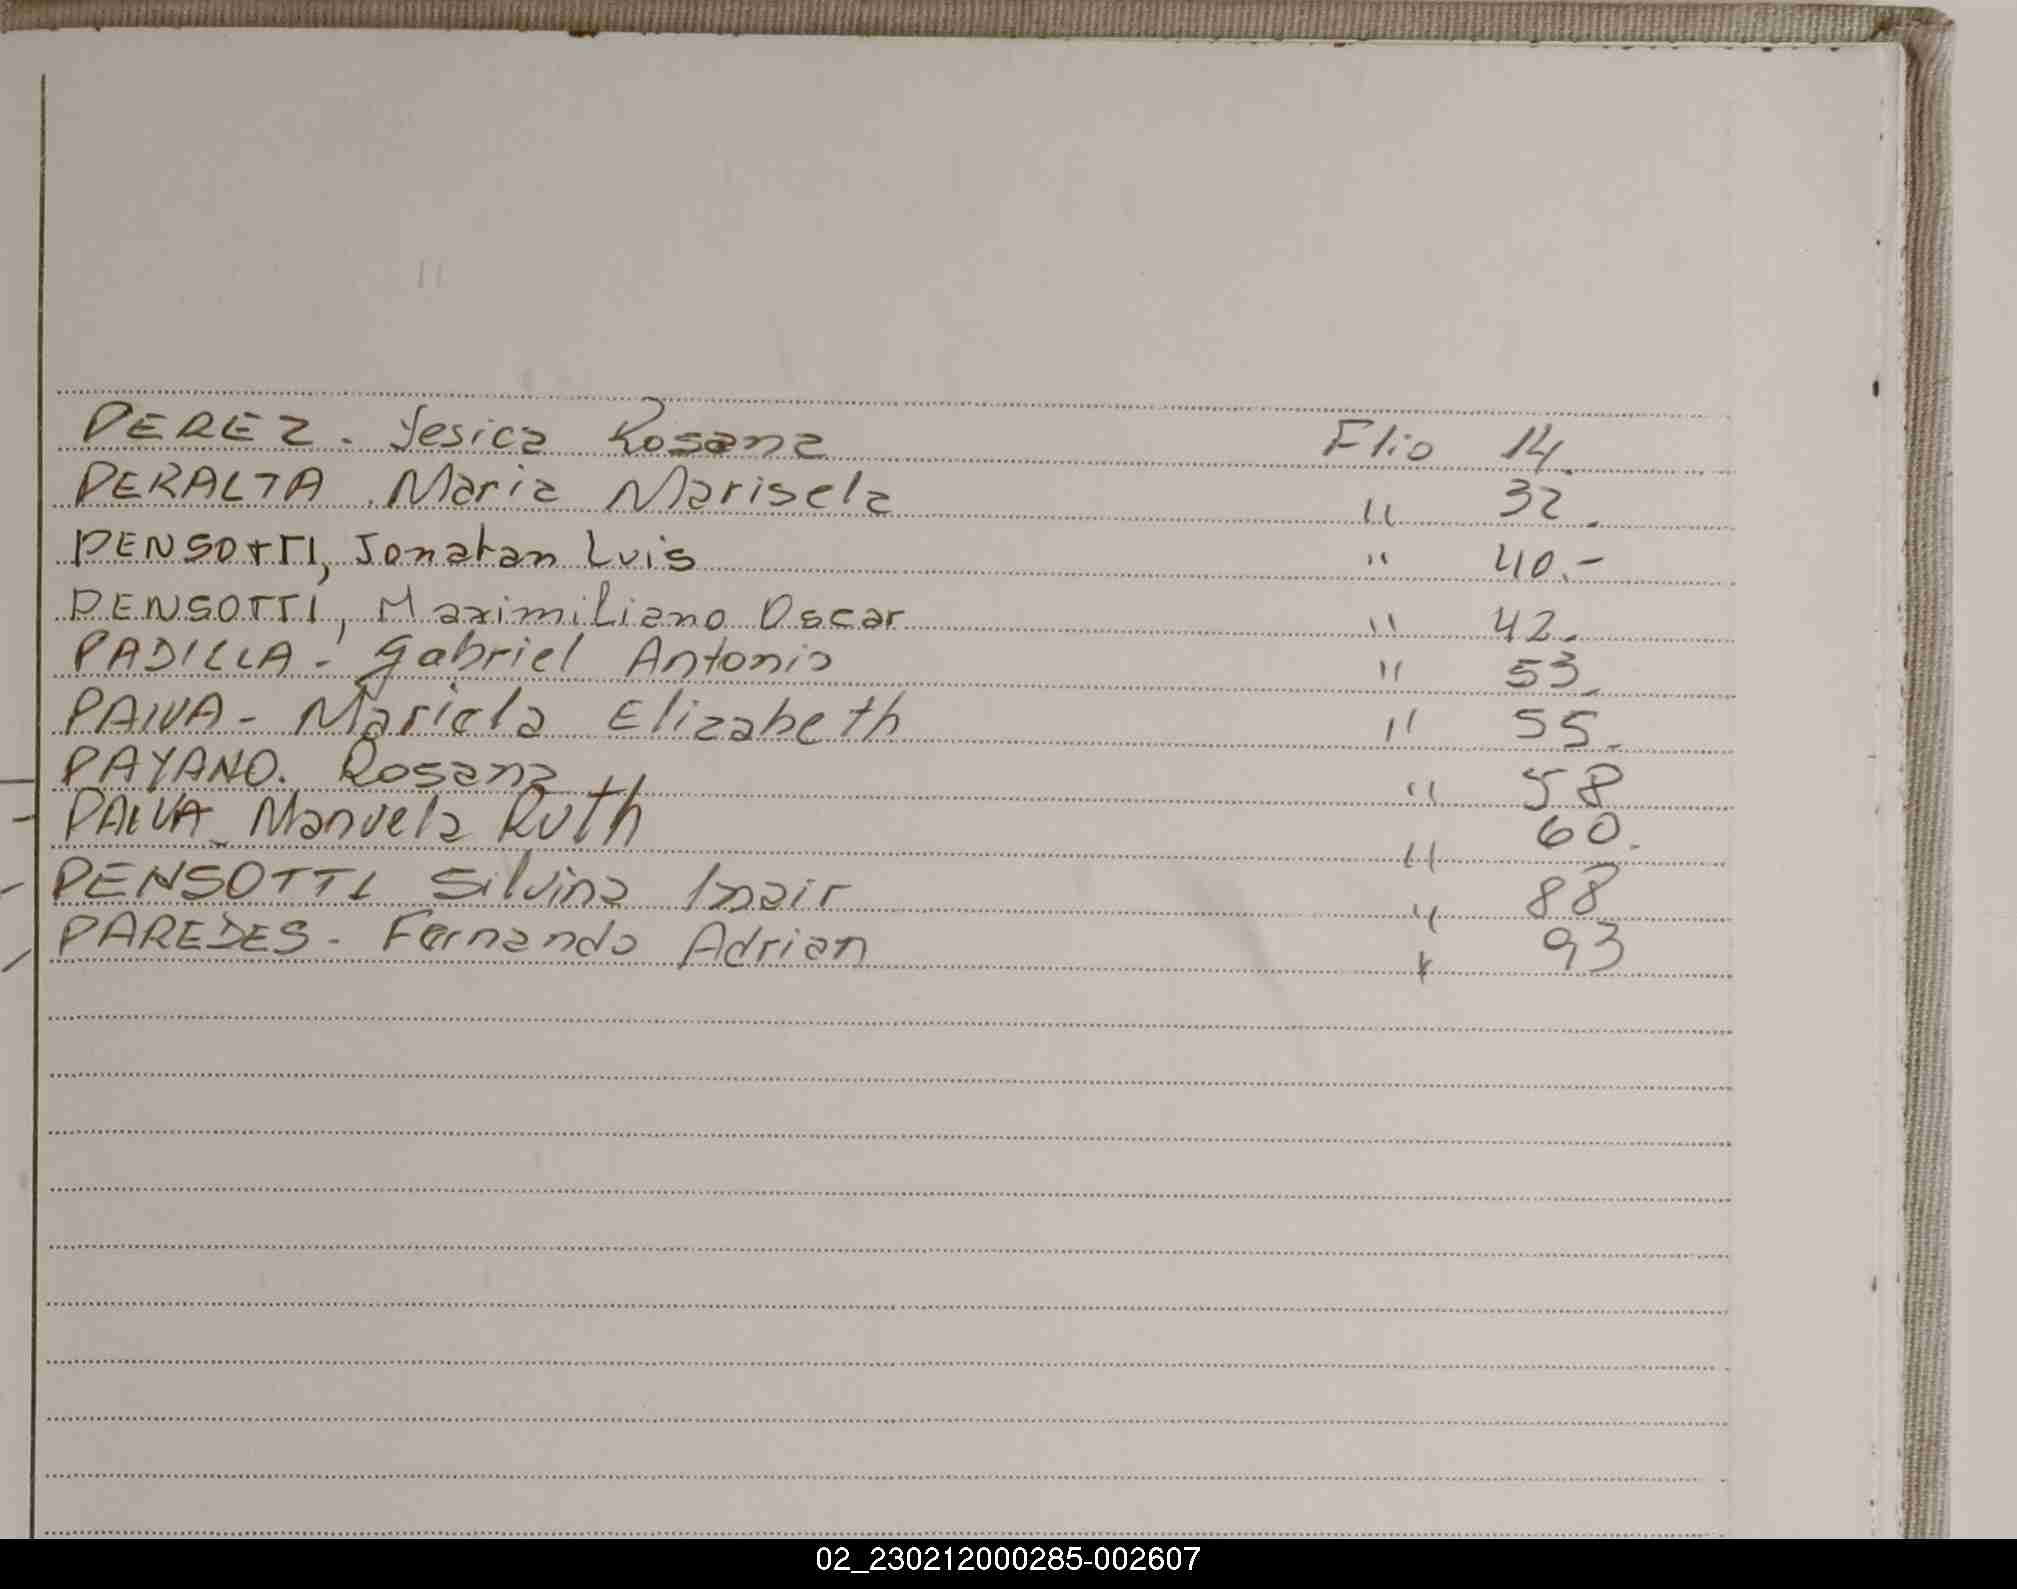 PEREZ. Yesica Rosana Flio 14.
PERALTA. Maria Marisela " 32.
PENSOTTI, Jonatan Luis " 40.-
PENSOTTI, Maximiliano Oscar " 42.
PADILLA - Gabriel Antonio " 53.
PAIVA - Mariela Elizabeth " 55.
PAYANO. Rosana " 58
PAIVA - Manuela Ruth " 60.
PENSOTTI Silvina Inair " 88
PAREDES - Fernando Adrian " 93
02_230212000285-002607